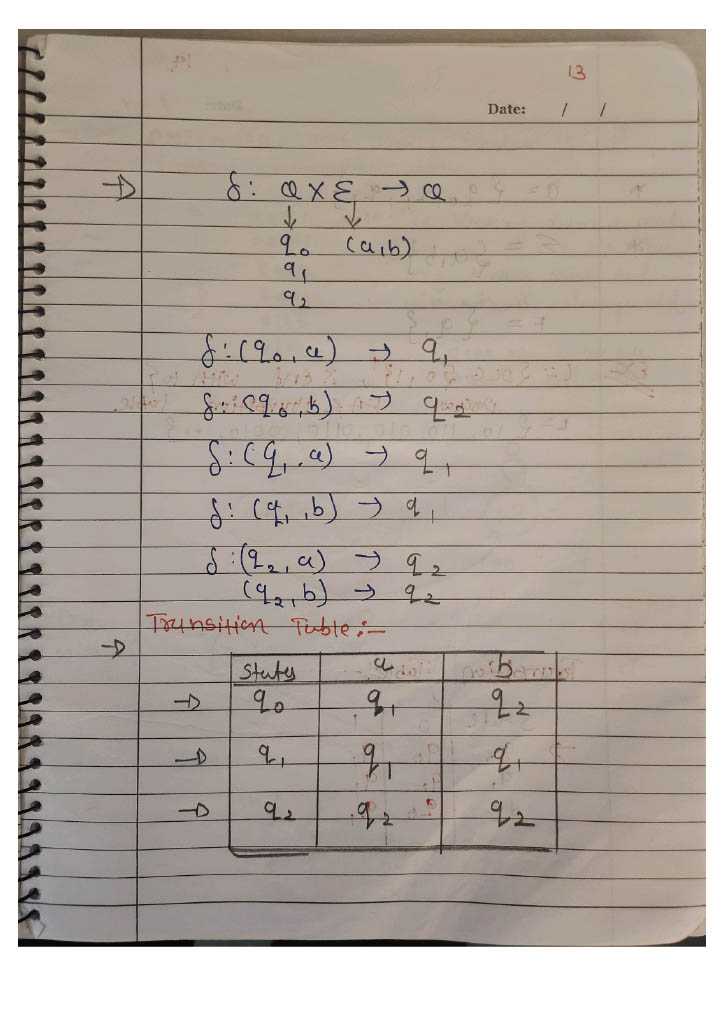 13
Date: / /
→ δ: Q X Σ → Q
↓ ↓
q₀ (a,b)
q₁
q₂
δ:(q₀, a) → q₁
δ: (q₀, b) → q₂
δ:(q₁, a) → q₁
δ: (q₁, b) → q₁
δ:(q₂, a) → q₂
(q₂, b) → q₂
Transition Table:-
→ States a b
→ q₀ q₁ q₂
→ q₁ q₁ q₁
→ q₂ q₂ q₂